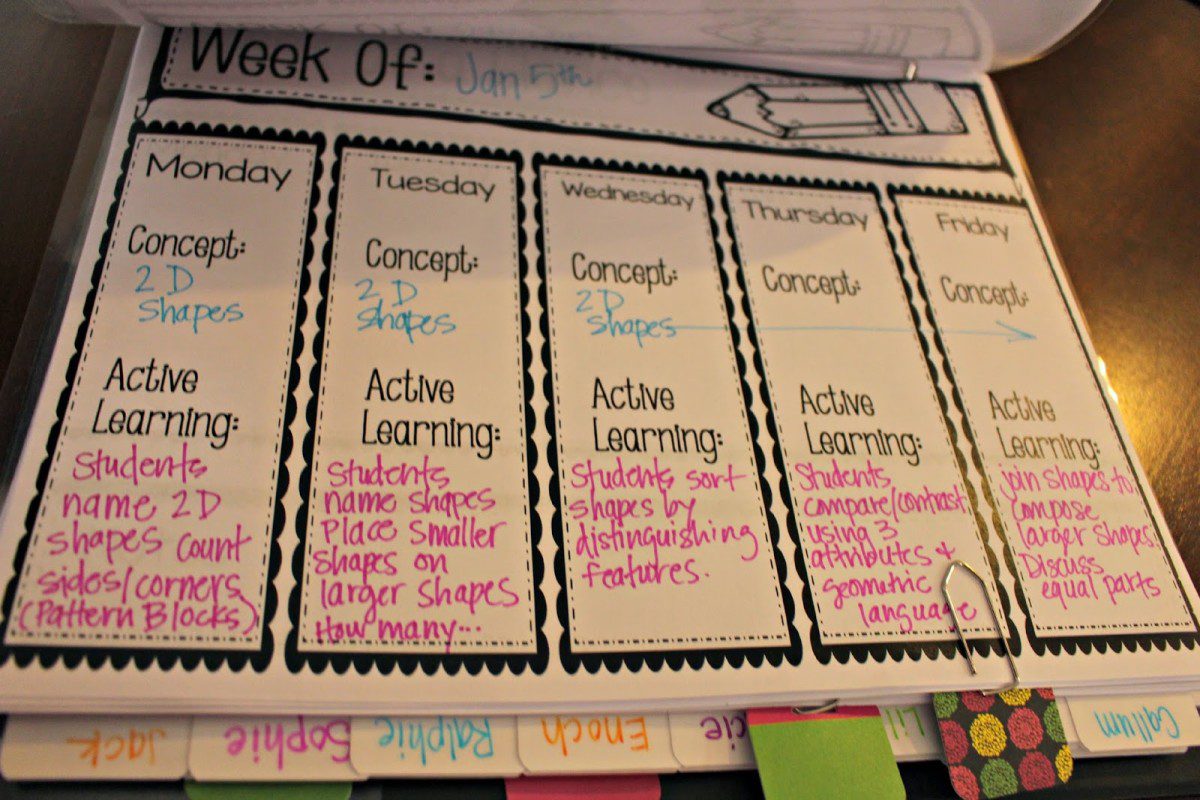 Week Of: Jan 5th
Monday
Concept:
2 D
Shapes
Active
Learning:
Students
name 2D
shapes count
sides/corners
(Pattern Blocks)
Tuesday
Concept:
2 D
Shapes
Active
Learning:
Students
name shapes
Place smaller
shapes on
larger shapes
How many...
Wednesday
Concept:
2D
Shapes
Active
Learning:
Students sort
shapes by
distinguishing
features.
Thursday
Concept:
Active
Learning:
Students
compare/contrast
using 3
attributes +
geometric
language
Friday
Concept:
Active
Learning:
join shapes to
compose
larger shapes.
Discuss
equal parts
Jack
Sophie
Ralphie
Enoch
Callum